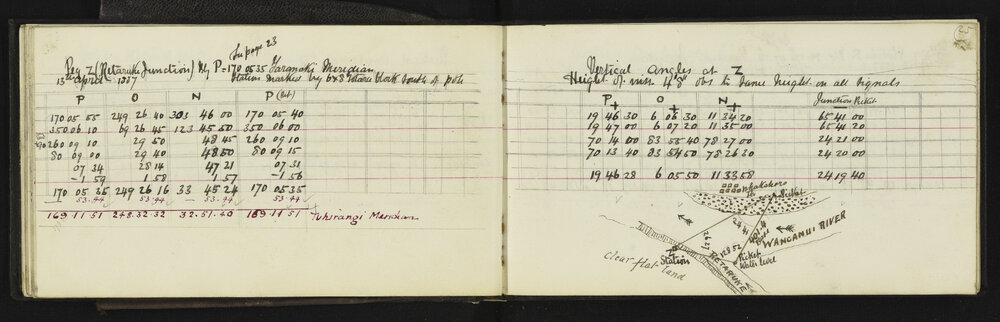 In page 23
Peg Z (Retaruke Junction) My P = 170 05 35 Taranaki Meridian
13th April 1887 Station marked by 6x3 totara block South of pole
P O N P (Out)
170 05 55 249 26 40 303 46 00 170 05 40
350 06 10 69 26 45 123 45 50 350 06 00
260 09 10 29 50 48 45 260 09 10
80 09 00 29 40 48 50 80 09 15
07 34 28 14 47 21 07 31
-1 59 1 58 1 57 -1 56
170 05 35 249 26 16 33 45 24 170 05 35
53.44 53.44 53.44 53.44
169.11.51 248.32.32 32.51.40 169.11.51 Tuhirangi Meridian
25
Vertical Angles at Z
Height of inst 4'8" obs to same height on all signals
P O N Junction Picket
19 46 30 6 06 30 11 34 20 65 41 00
19 47 00 6 07 20 11 35 00 65 41 20
70 14 00 83 55 40 78 27 00 24 21 00
70 13 40 83 54 50 78 26 30 24 20 00
19 46 28 6 05 50 11 33 58 24 19 40
Whakahoro
Picket
WANGANUI RIVER
RETARUKE
Station
Picket
Water level
Clear flat land